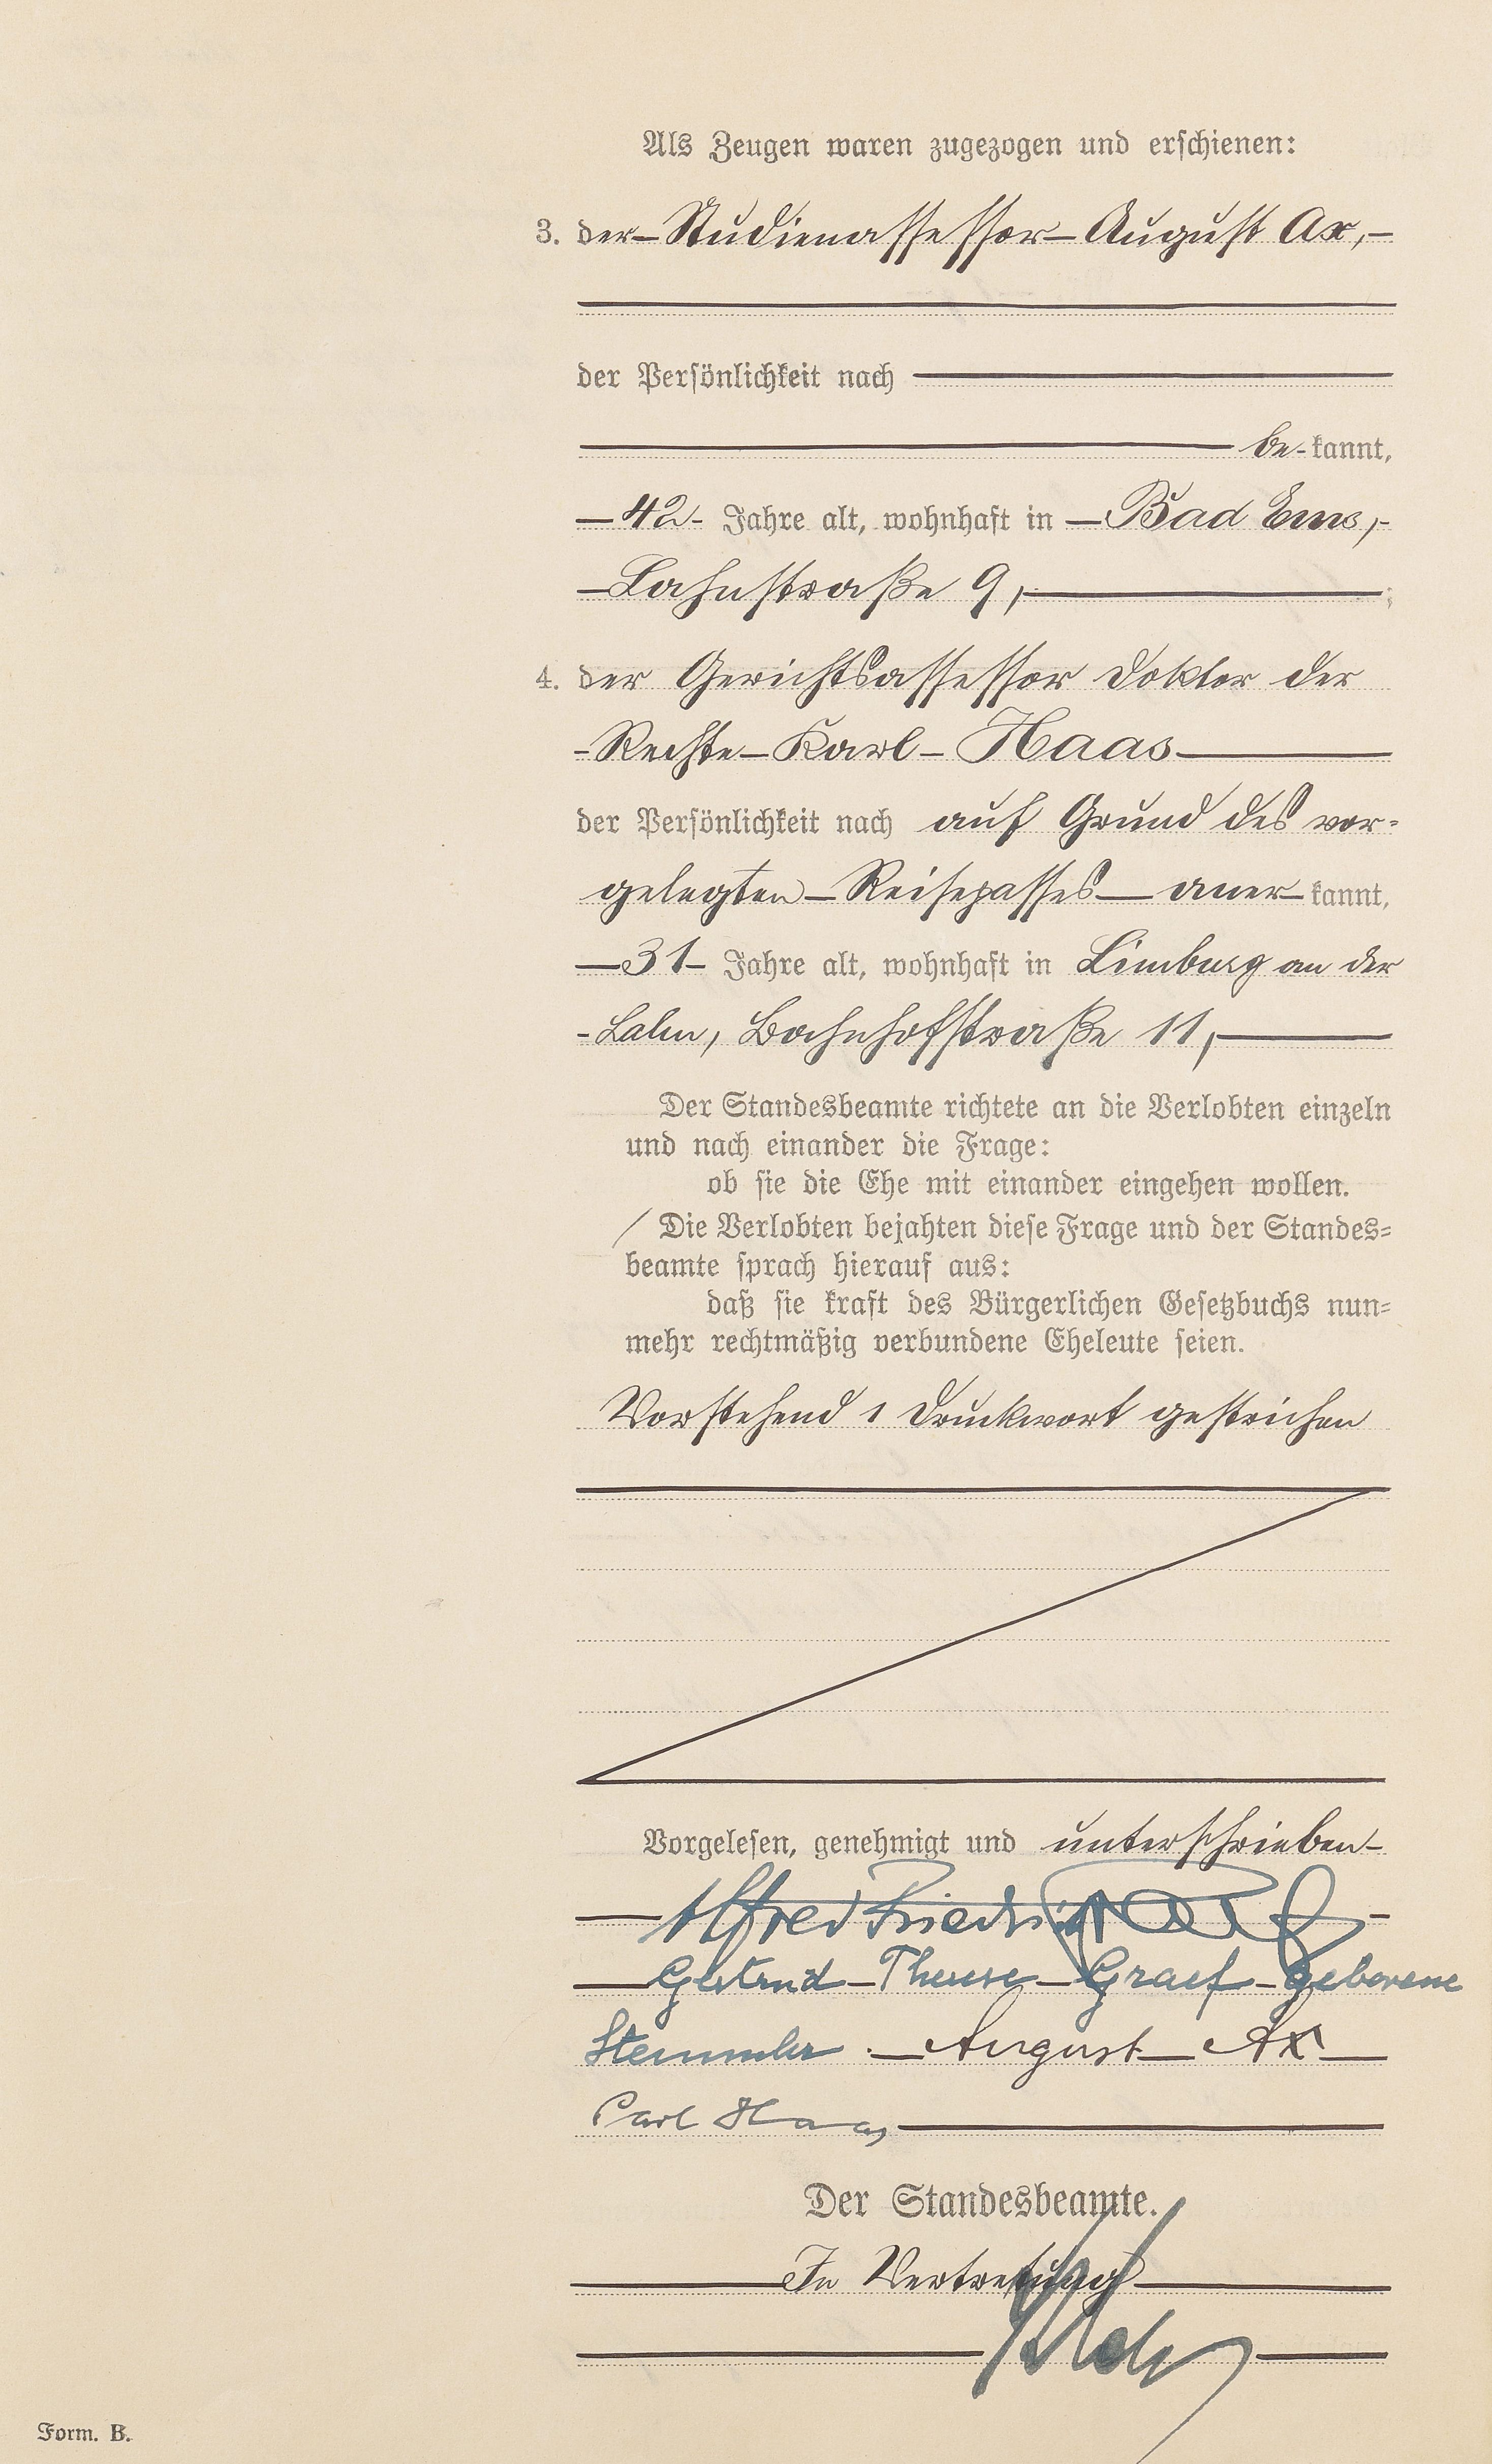 Als Zeugen waren zugezogen und erschienen:
3. der Studienassessor August Ax,
der Persönlichkeit nach
be kannt,
42 Jahre alt, wohnhaft in Bad Ems,
Lahnstraße 9, ;
4. der Gerichtsassessor Doktor der
Rechte Karl Haas
der Persönlichkeit nach auf Grund des vor-
gelegten Reisepasses aner kannt,
31 Jahre alt, wohnhaft in Limburg an der
Lahn, Bahnhofstraße 11,
Der Standesbeamte richtete an die Verlobten einzeln
und nach einander die Frage:
ob sie die Ehe mit einander eingehen wollen.
Die Verlobten bejahten diese Frage und der Standes-
beamte sprach hierauf aus:
daß sie kraft des Bürgerlichen Gesetzbuchs nun-
mehr rechtmäßig verbundene Eheleute seien.
Vorstehend 1 Druckwort gestrichen
Vorgelesen, genehmigt und unterschrieben
Alfred Friedrich Graef
Gertrud Therese Graef geborene
Stemmler. August Ax
Carl Haas
Der Standesbeamte.
In Vertretung
Form. B.